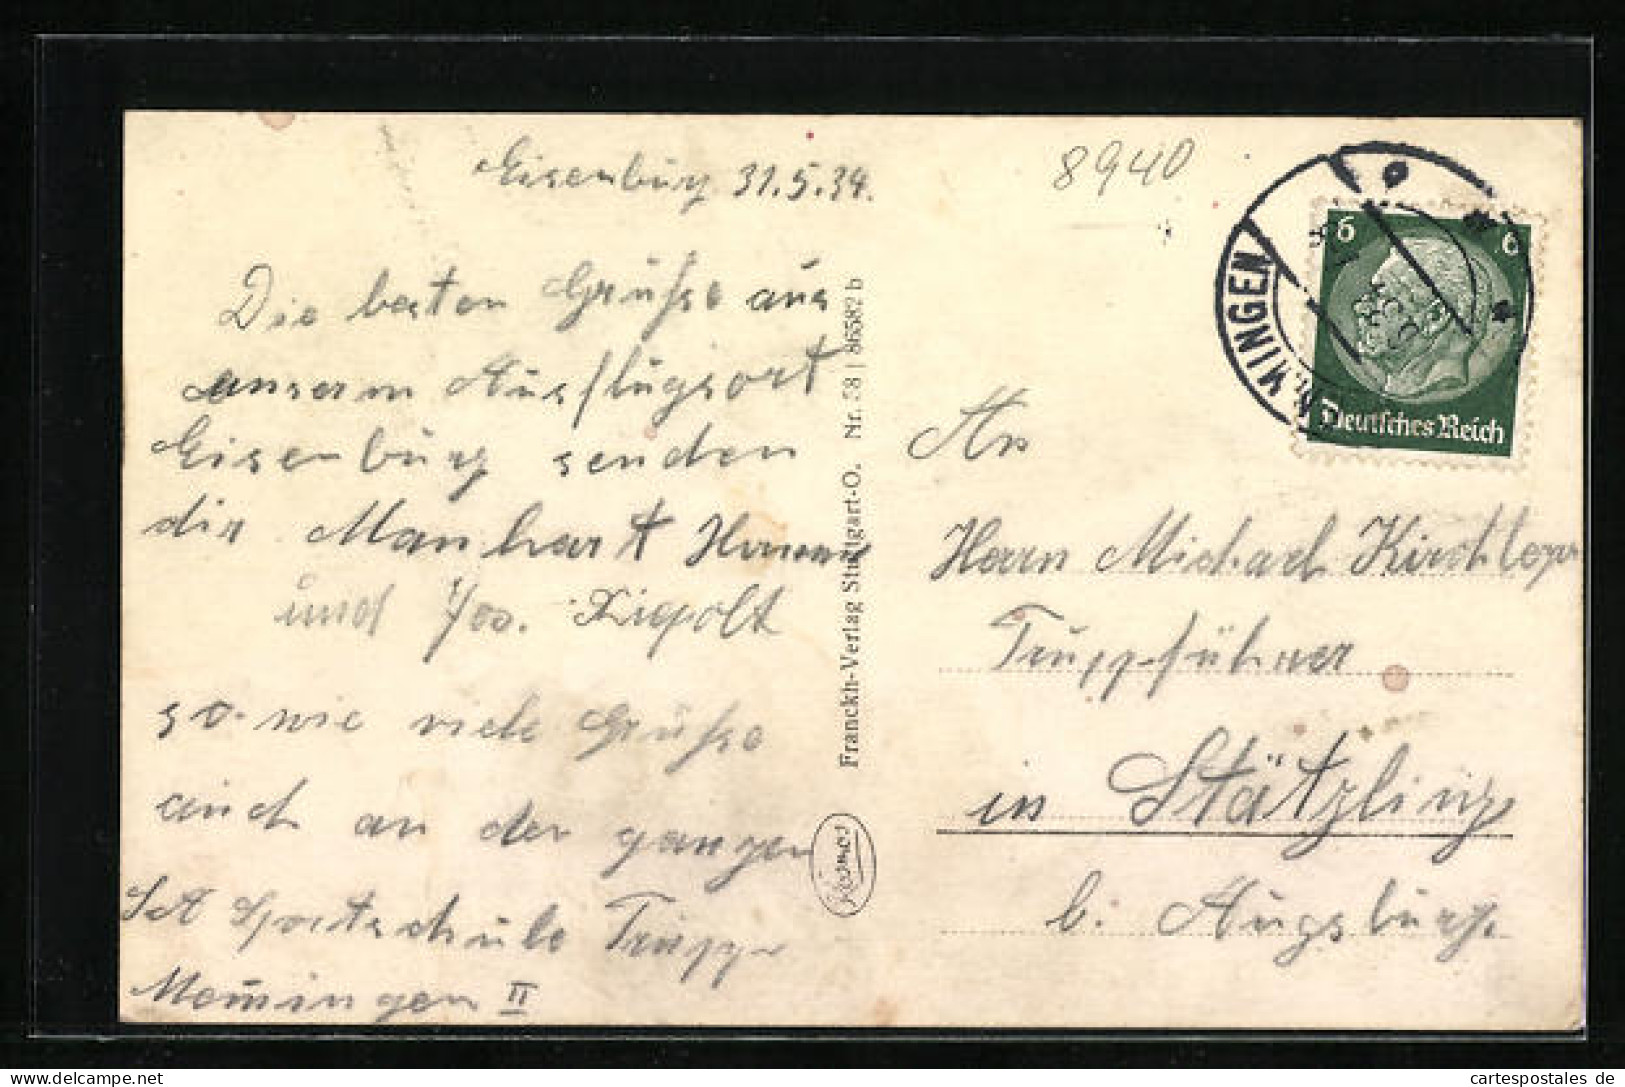 Eisenburg 31.5.34.
Die besten Grüße aus
unserm Ausflugsort
Eisenburg senden
dir Manhart
und Jos. Ziepolt
so wie viele Grüße
auch an der ganzen
Sportschule Trupp
Memmingen II
Franckh-Verlag Stuttgart-O. Nr. 58 | 86582 b
Kosmos
8940
MINGEN
6 6
Deutsches Reich
An
Herrn Michael
Truppführer
in Stätzling
b. Augsburg.
cartespostales de